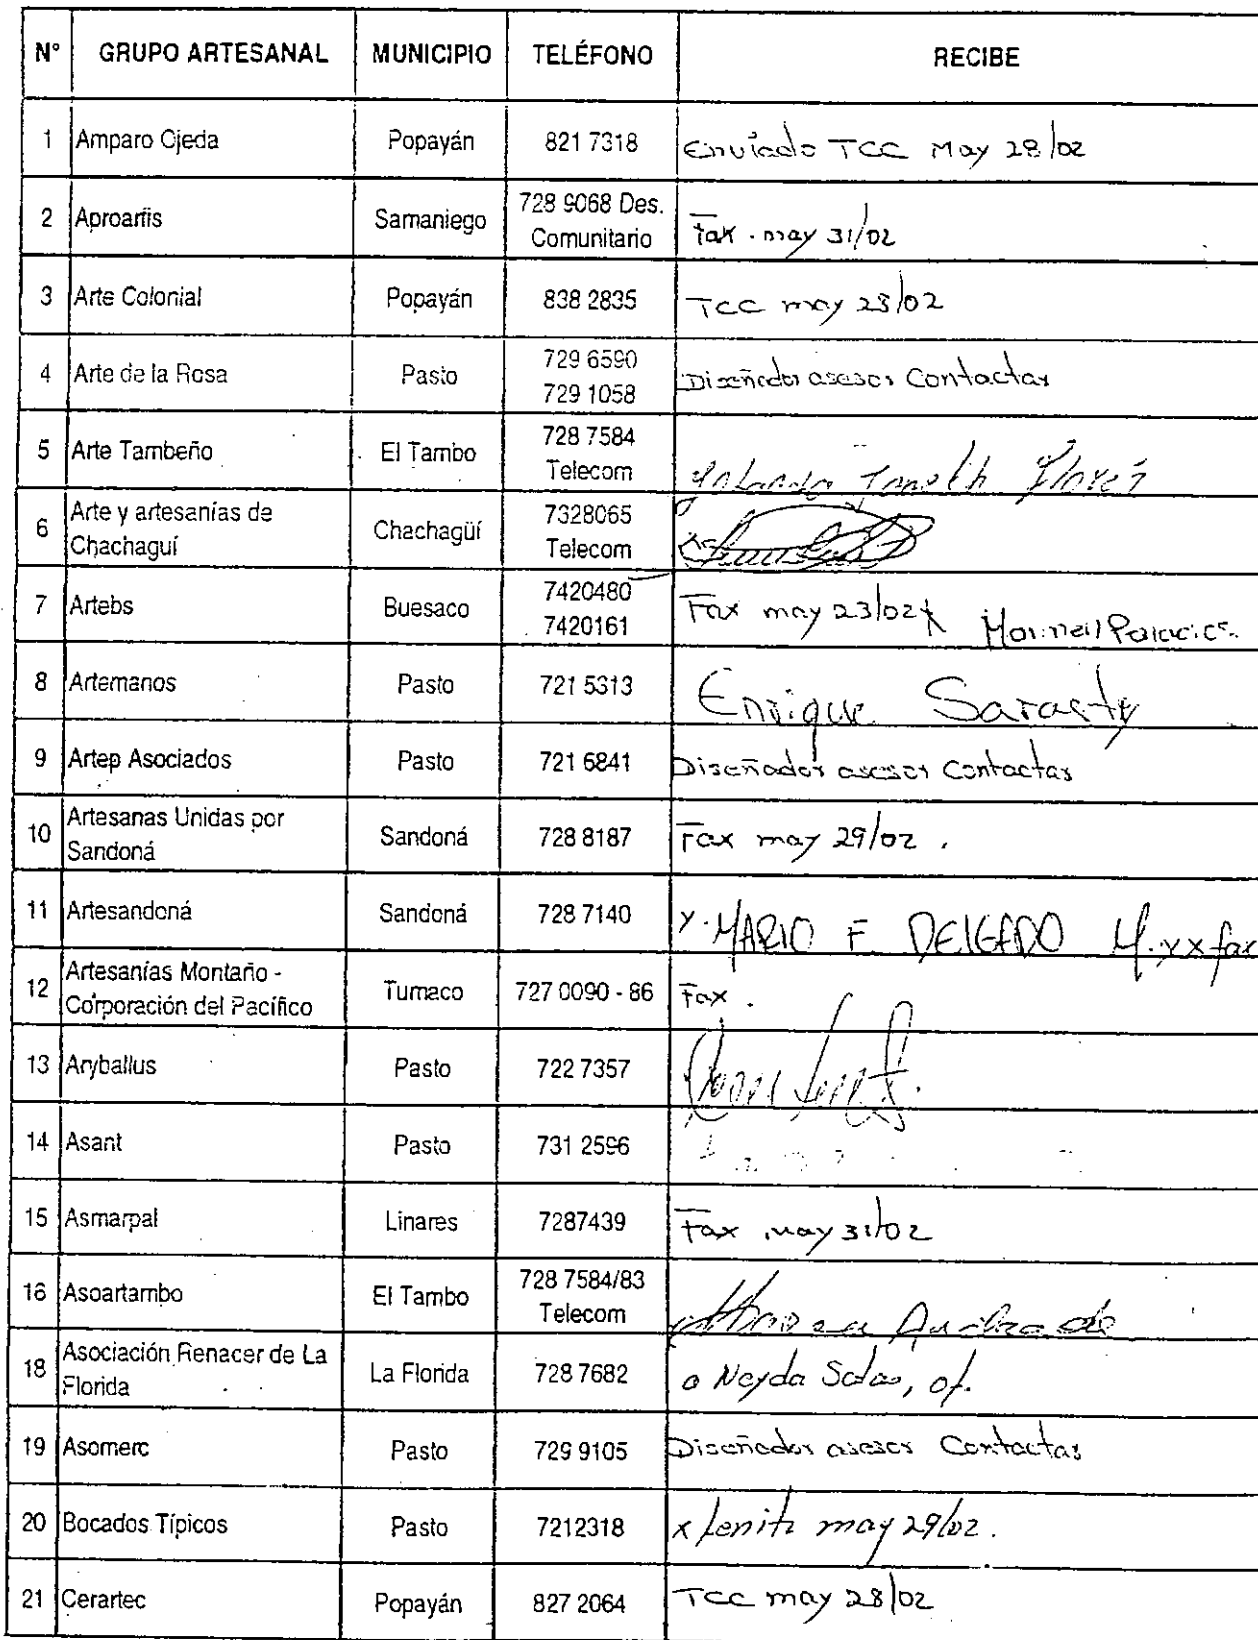 N° GRUPO ARTESANAL MUNICIPIO TELÉFONO RECIBE
1 Amparo Ojeda Popayán 821 7318 Enviado TCC May 28/02
2 Aproartis Samaniego 728 9068 Des. Comunitario Fax. may 31/02
3 Arte Colonial Popayán 838 2835 TCC may 28/02
4 Arte de la Rosa Pasto 729 6590 729 1058 Diseñador asesor Contactar
5 Arte Tambeño El Tambo 728 7584 Telecom
6 Arte y artesanías de Chachaguí Chachagüí 7328065 Telecom
7 Artebs Buesaco 7420480 7420161 Fax may 23/02 x
8 Artemanos Pasto 721 5313 Enrique Sarasty
9 Artep Asociados Pasto 721 6841 Diseñador asesor Contactar
10 Artesanas Unidas por Sandoná Sandoná 728 8187 Fax may 29/02.
11 Artesandoná Sandoná 728 7140 x. MARIO F DELGADO M. xx fax
12 Artesanías Montaño - Corporación del Pacífico Tumaco 727 0090 - 86 Fax.
13 Aryballus Pasto 722 7357
14 Asant Pasto 731 2596
15 Asmarpal Linares 7287439 Fax may 31/02
16 Asoartambo El Tambo 728 7584/83 Telecom
18 Asociación Renacer de La Florida La Florida 728 7682 Neyda Salas, of.
19 Asomerc Pasto 729 9105 Diseñador asesor Contactar
20 Bocados Típicos Pasto 7212318 x may 29/02.
21 Cerartec Popayán 827 2064 TCC may 28/02